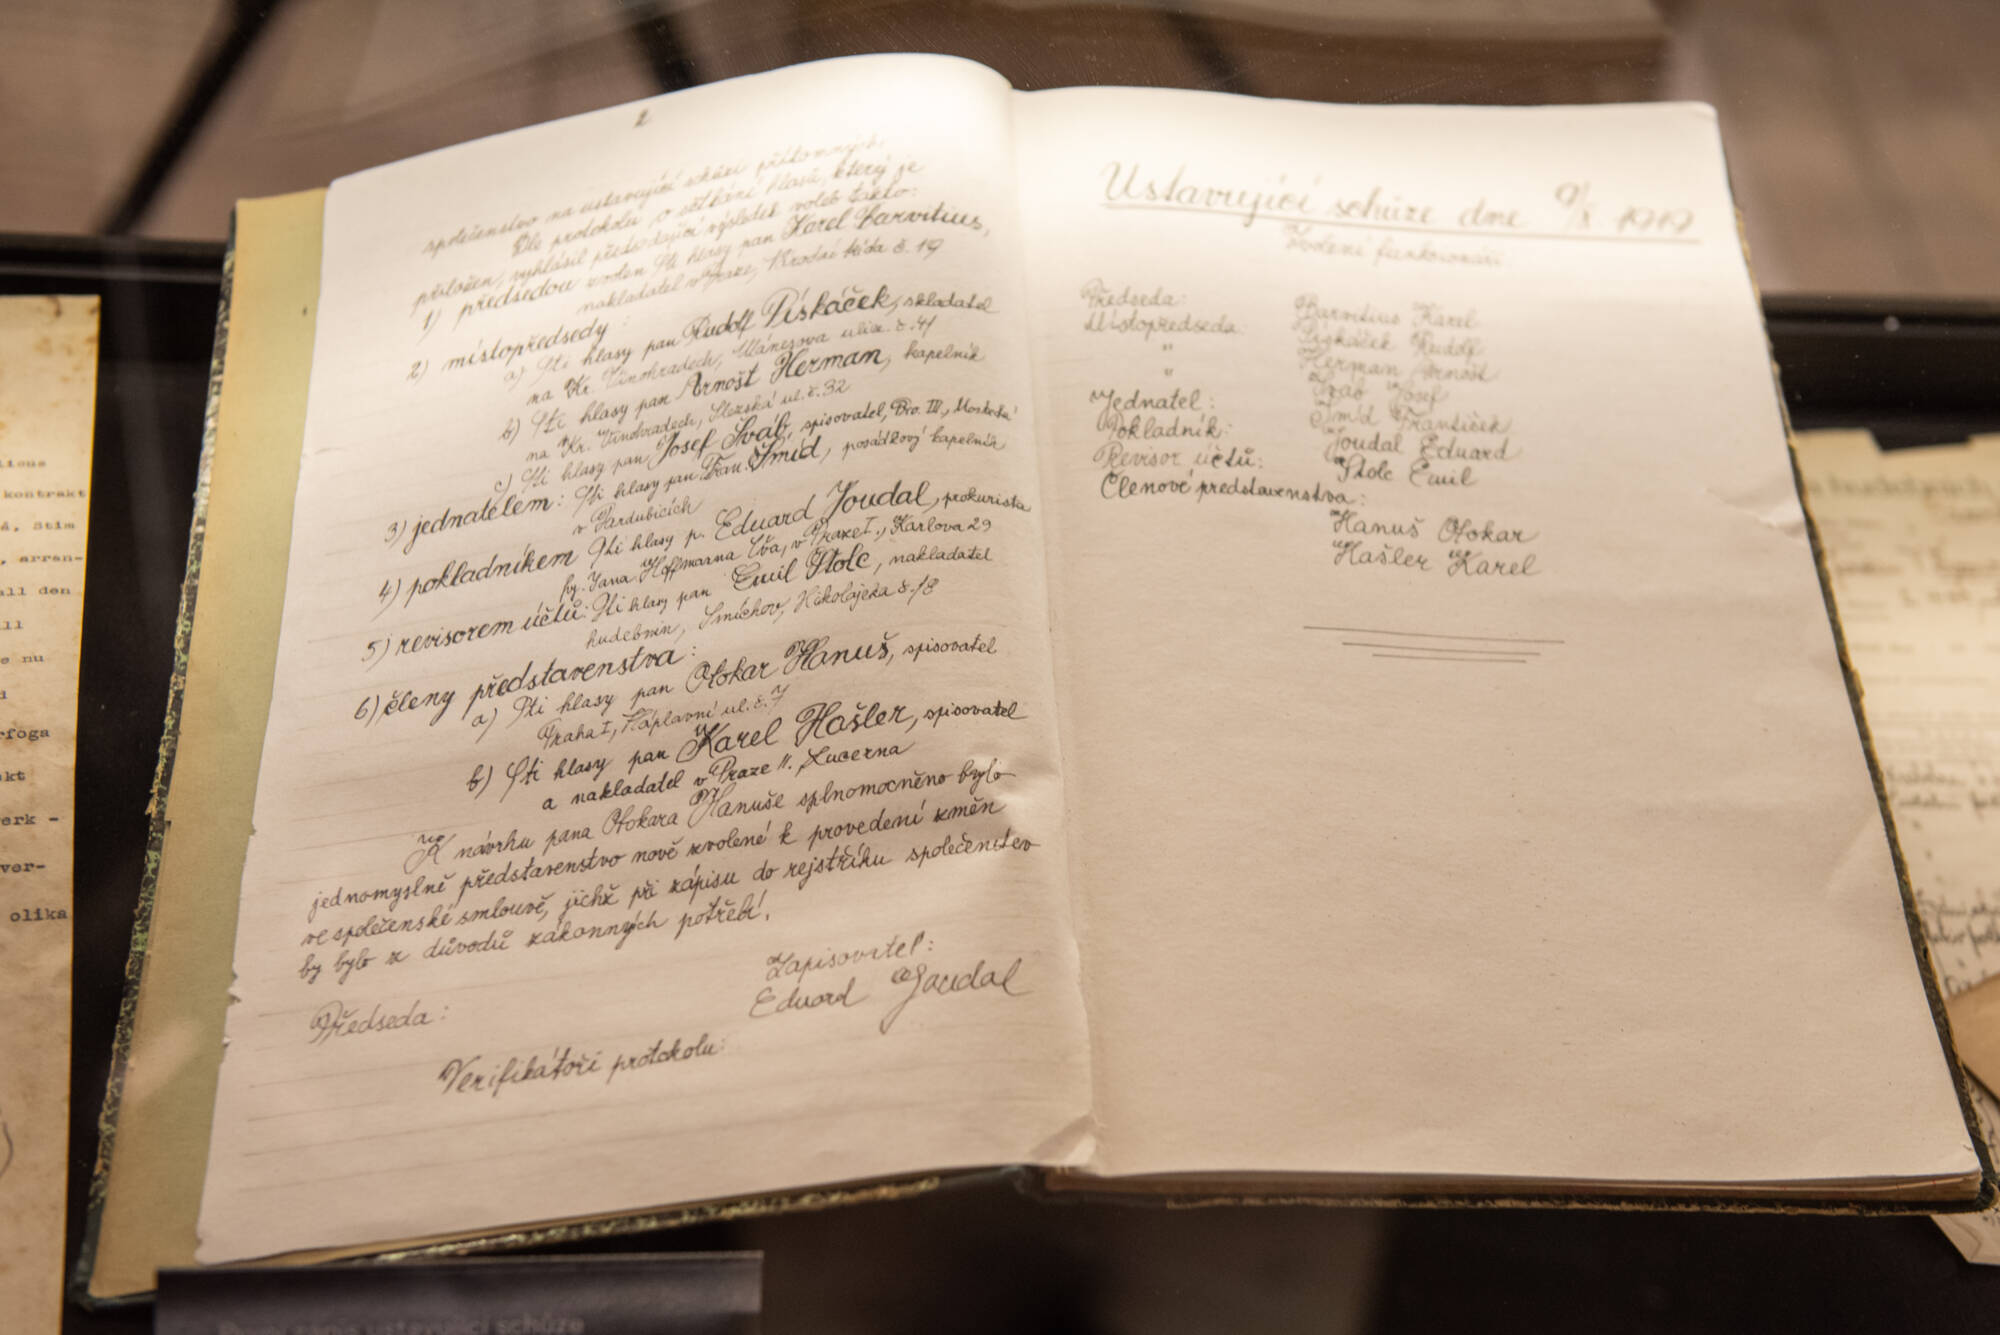 2
společenstvo na ustavující schůzi přítomných.
Dle protokolu o sčítání hlasů, který je
přiložen, vyhlásil předsedající výsledek voleb takto:
1) předsedou zvolen Sti hlasy pan Karel Barvitius,
nakladatel v Praze, Vodní třída č. 19
2) místopředsedy:
a) Sti hlasy pan Rudolf Piskáček, skladatel
na Kr. Vinohradech, Mánesova ulice č. 41
b) Sti hlasy pan Arnošt Herman, kapelník
na Kr. Vinohradech, Slezská ul. č. 32
c) Sti hlasy pan Josef Šváb, spisovatel, Pro. III., Mostecká
3) jednatelem: Sti hlasy pan Fran. Šmíd, posádkový kapelník
v Pardubicích
4) pokladníkem Sti hlasy p. Eduard Joudal, prokurista
fy. Jana Hoffmanna Vva, v Praze I., Karlova 29
5) revisorem účtů: Sti hlasy pan Emil Stolc, nakladatel
hudebnin, Smíchov, Nikolajeka č. 18
6) členy představenstva:
a) Sti hlasy pan Otokar Hanuš, spisovatel
Praha I, Náplavní ul. č. 7
b) Sti hlasy pan Karel Hašler, spisovatel
a nakladatel v Praze II., Lucerna
K návrhu pana Otokara Hanuše splnomocněno bylo
jednomyslně představenstvo nově zvolené k provedení změn
ve společenské smlouvě, jichž při zápisu do rejstříku společenstev
by bylo z důvodů zákonných potřebí.
Zapisovatel:
Předseda:
Eduard Joudal
Verifikátoři protokolu:
Ustavující schůze dne 9/X 1919
Zvolení funkcionáři
Předseda: Barvitius Karel
Místopředseda: Piskáček Rudolf
" Herman Arnošt
" Šváb Josef
Jednatel: Šmíd František
Pokladník: Joudal Eduard
Revisor účtů: Stolc Emil
Členové představenstva:
Hanuš Otokar
Hašler Karel
kontrakt
Stim
arran-
all den
nu
rfoga
verk -
ver-
olika
ustavující schůze